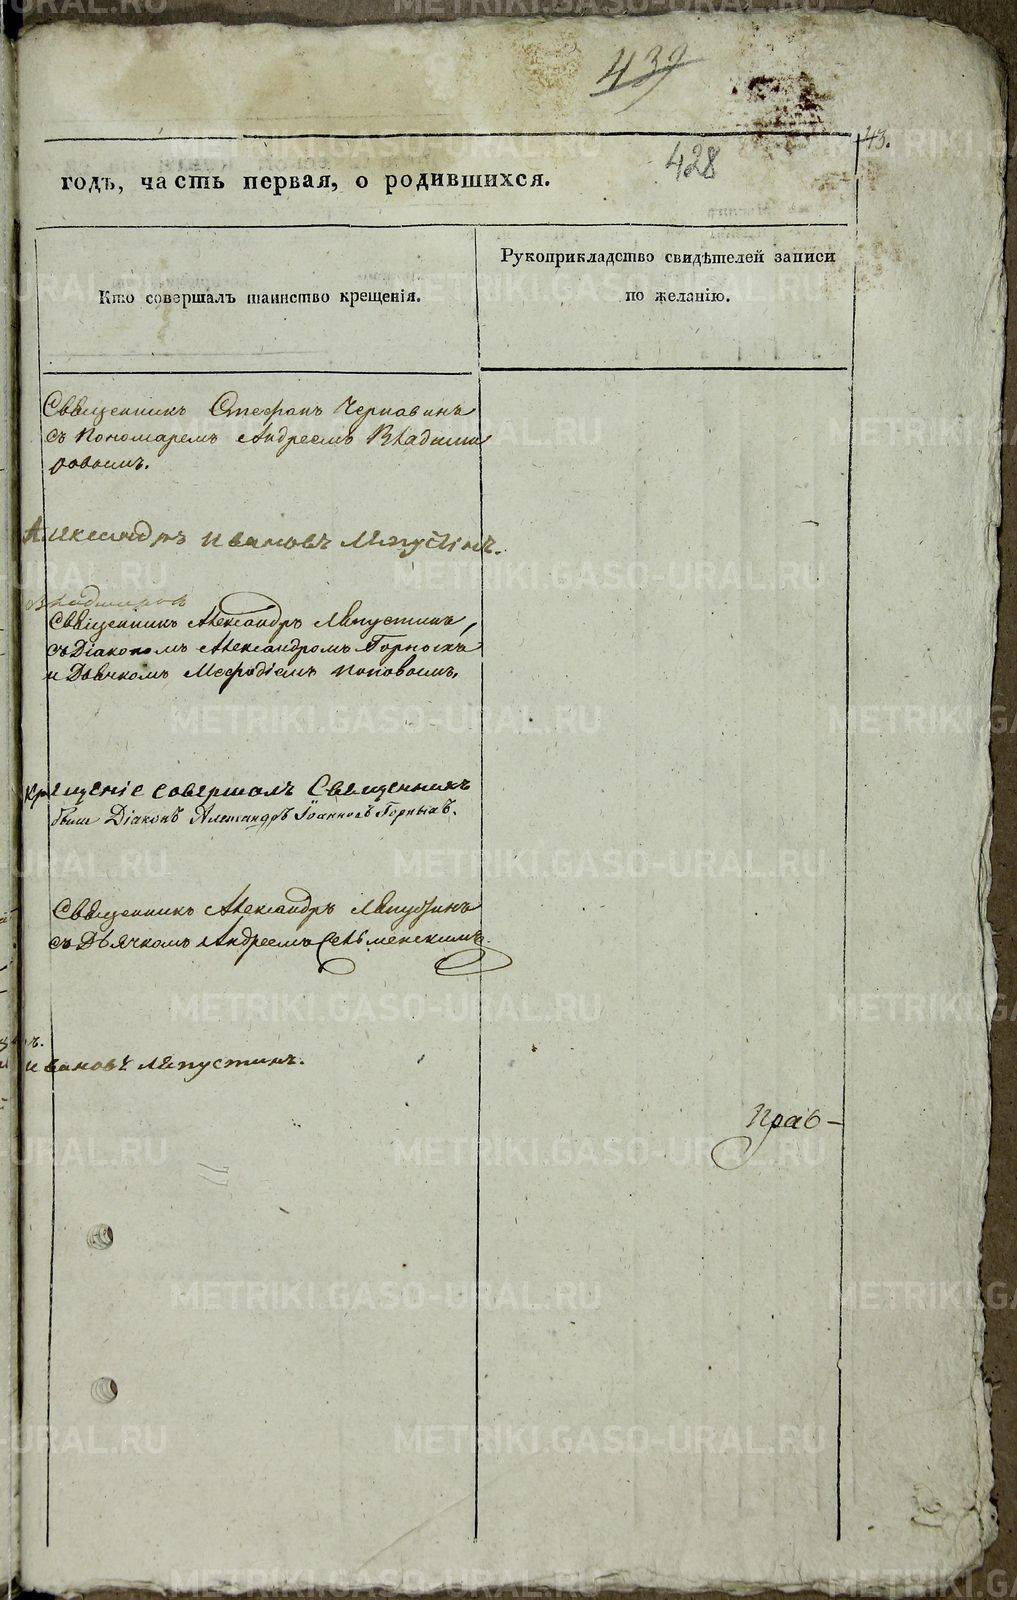 439
43.
428
годъ, часть первая, о родившихся.
Кто совершалъ таинство крещенія.
Рукоприкладство свидѣтелей записи
по желанію.
Священникъ Стефанъ Чернавинъ
съ Пономаремъ Андреемъ Владими
ровымъ.
Александръ Ивановъ Ляпустинъ.
Владимировъ
Священникъ Александръ Ляпустинъ,
съ Діакономъ Александромъ Горныхъ
и Дьячкомъ Мефодіемъ Поповымъ.
Крещеніе совершалъ Священникъ
были Діаконъ Александръ Іоанновъ Горныхъ.
Священникъ Александръ Ляпустинъ
съ Дьячкомъ Андреемъ Сельменскимъ.
Ивановъ Ляпустинъ.
Прав-
METRIKI.GASO-URAL.RU